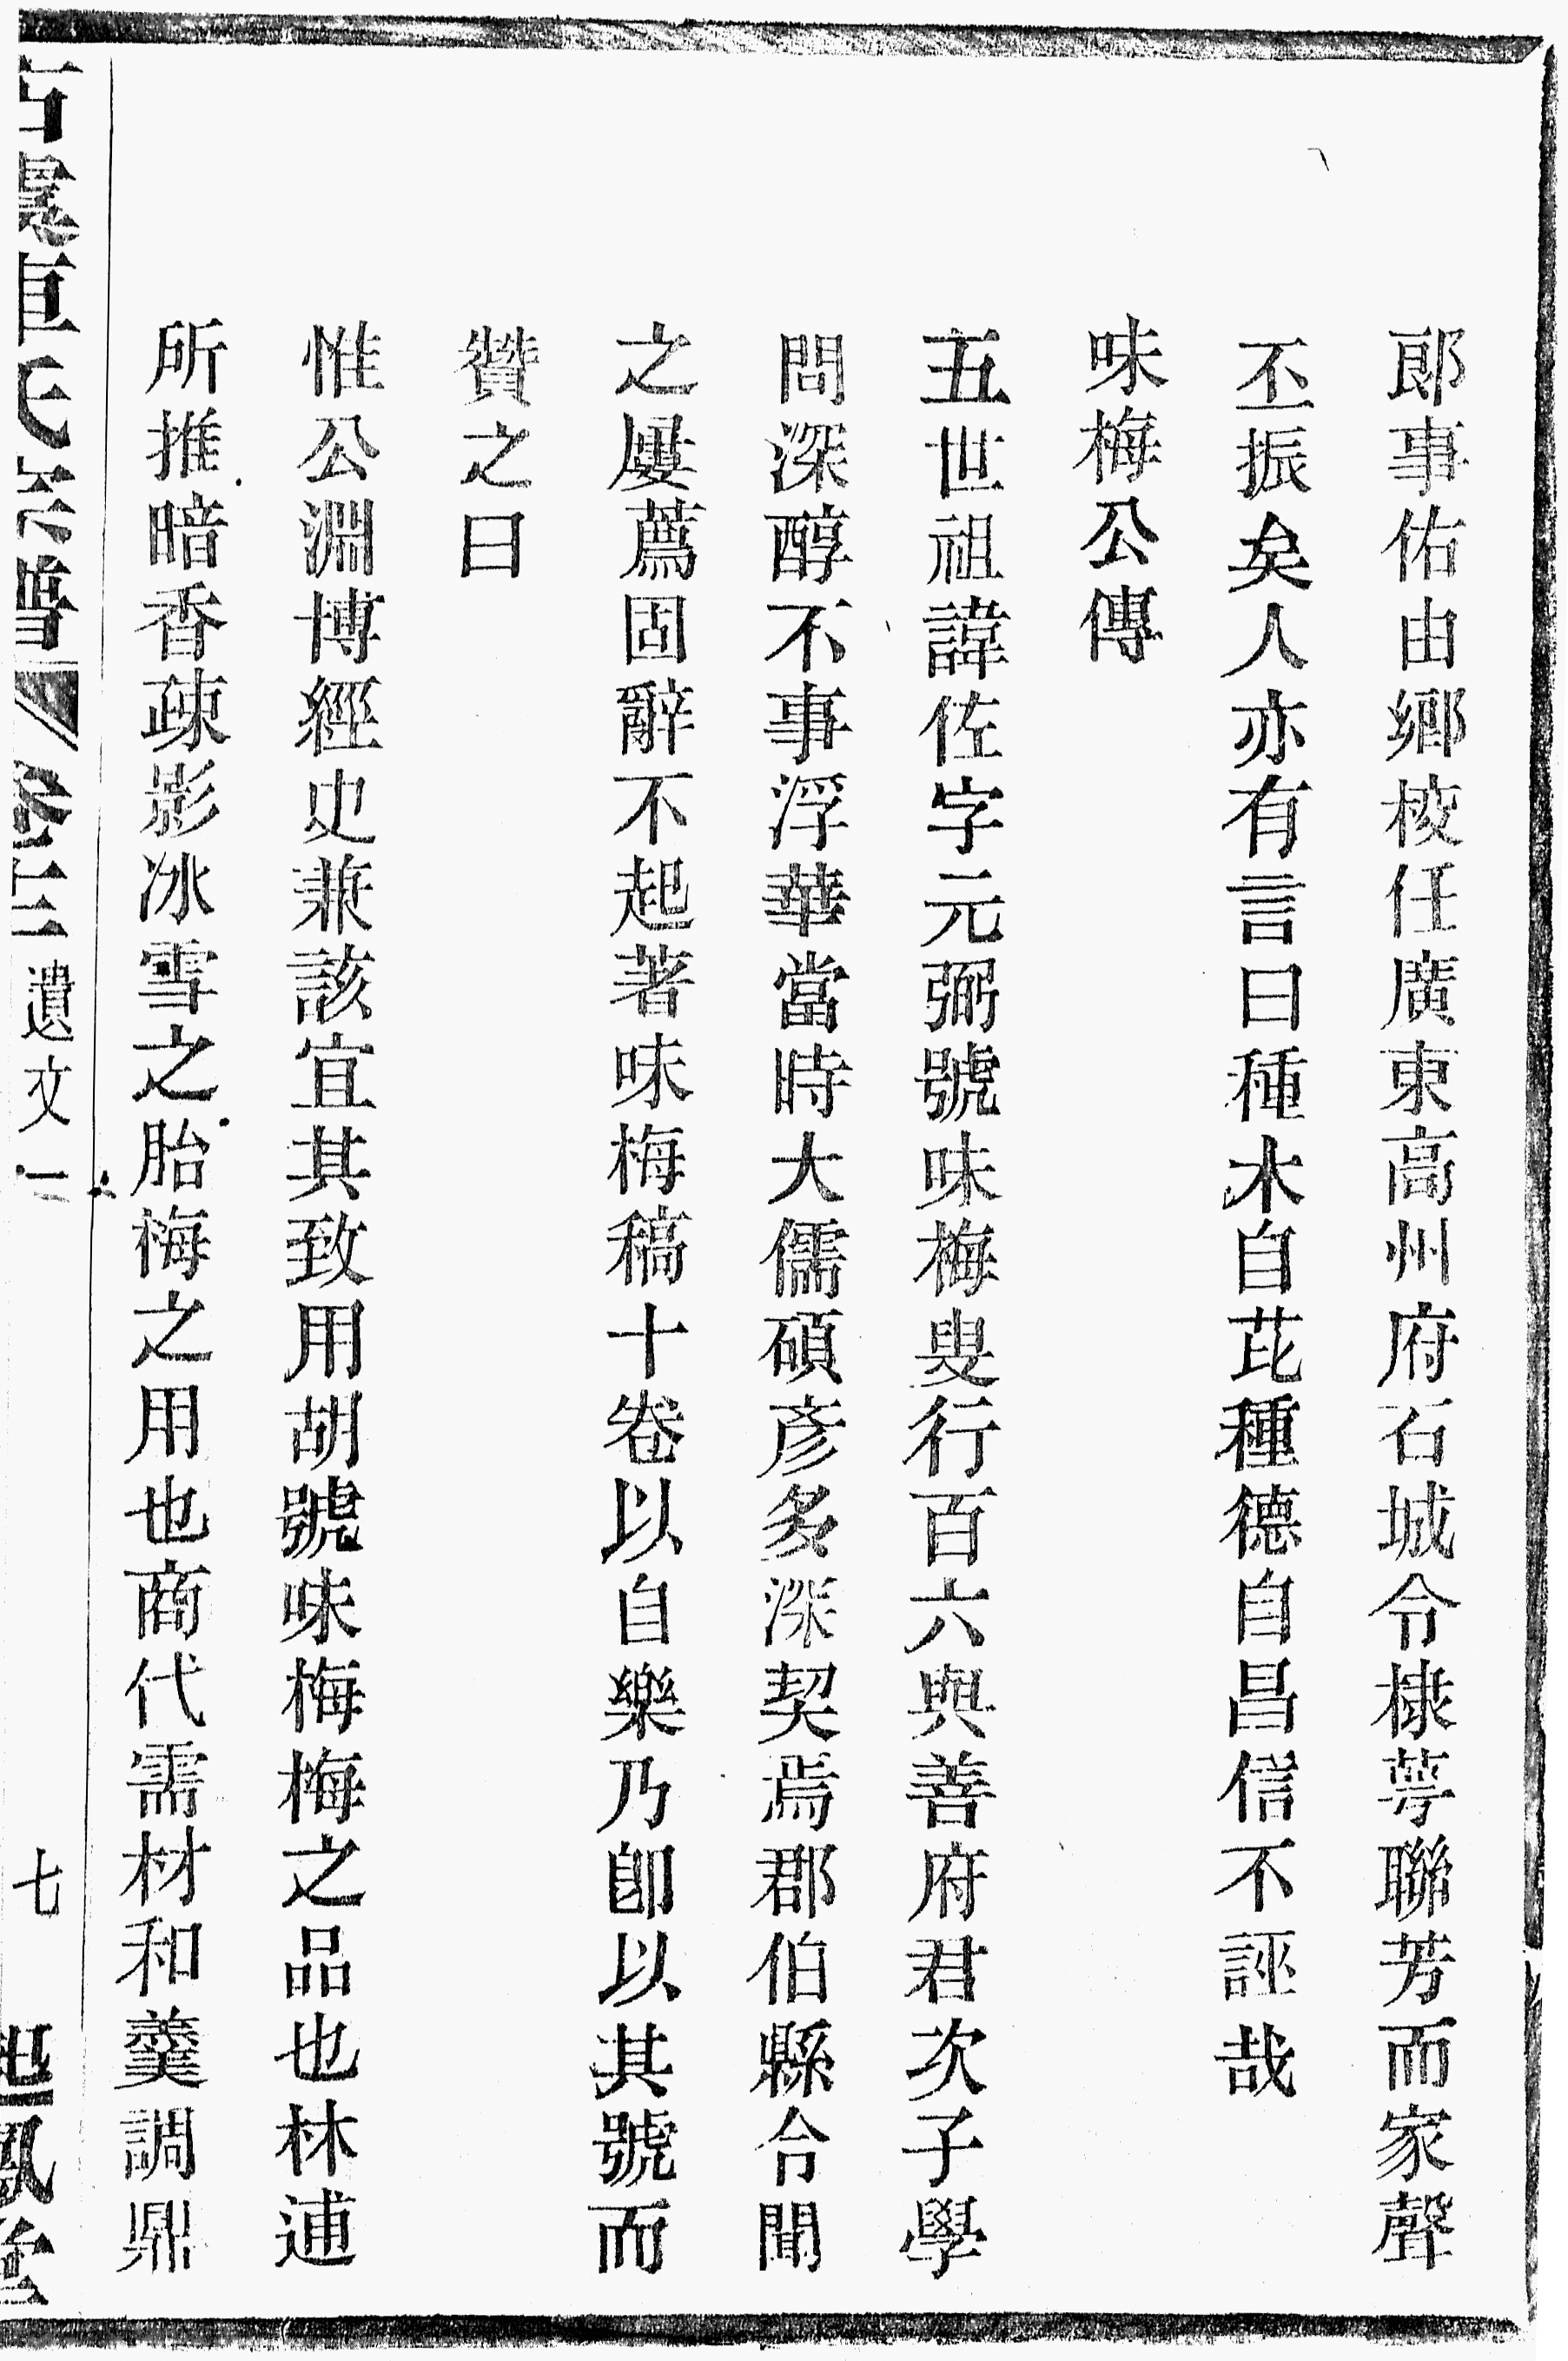 郎事佑由鄉校任廣東高州府石城令棣萼聯芳而家聲
丕振矣人亦有言曰種木自芘種德自昌信不誣哉
味梅公傳
五世祖諱佐字元弼號味梅叟行百六與善府君次子學
問深醇不事浮華當時大儒碩彥多深契焉郡伯縣令聞
之屢薦固辭不起著味梅稿十卷以自樂乃卽以其號而
贊之曰
惟公淵博經史兼該宜其致用胡號味梅梅之品也林逋
所推暗香疎影冰雪之胎梅之用也商代需材和羹調鼎
古虞車氏宗譜 卷十三 遺文一 七